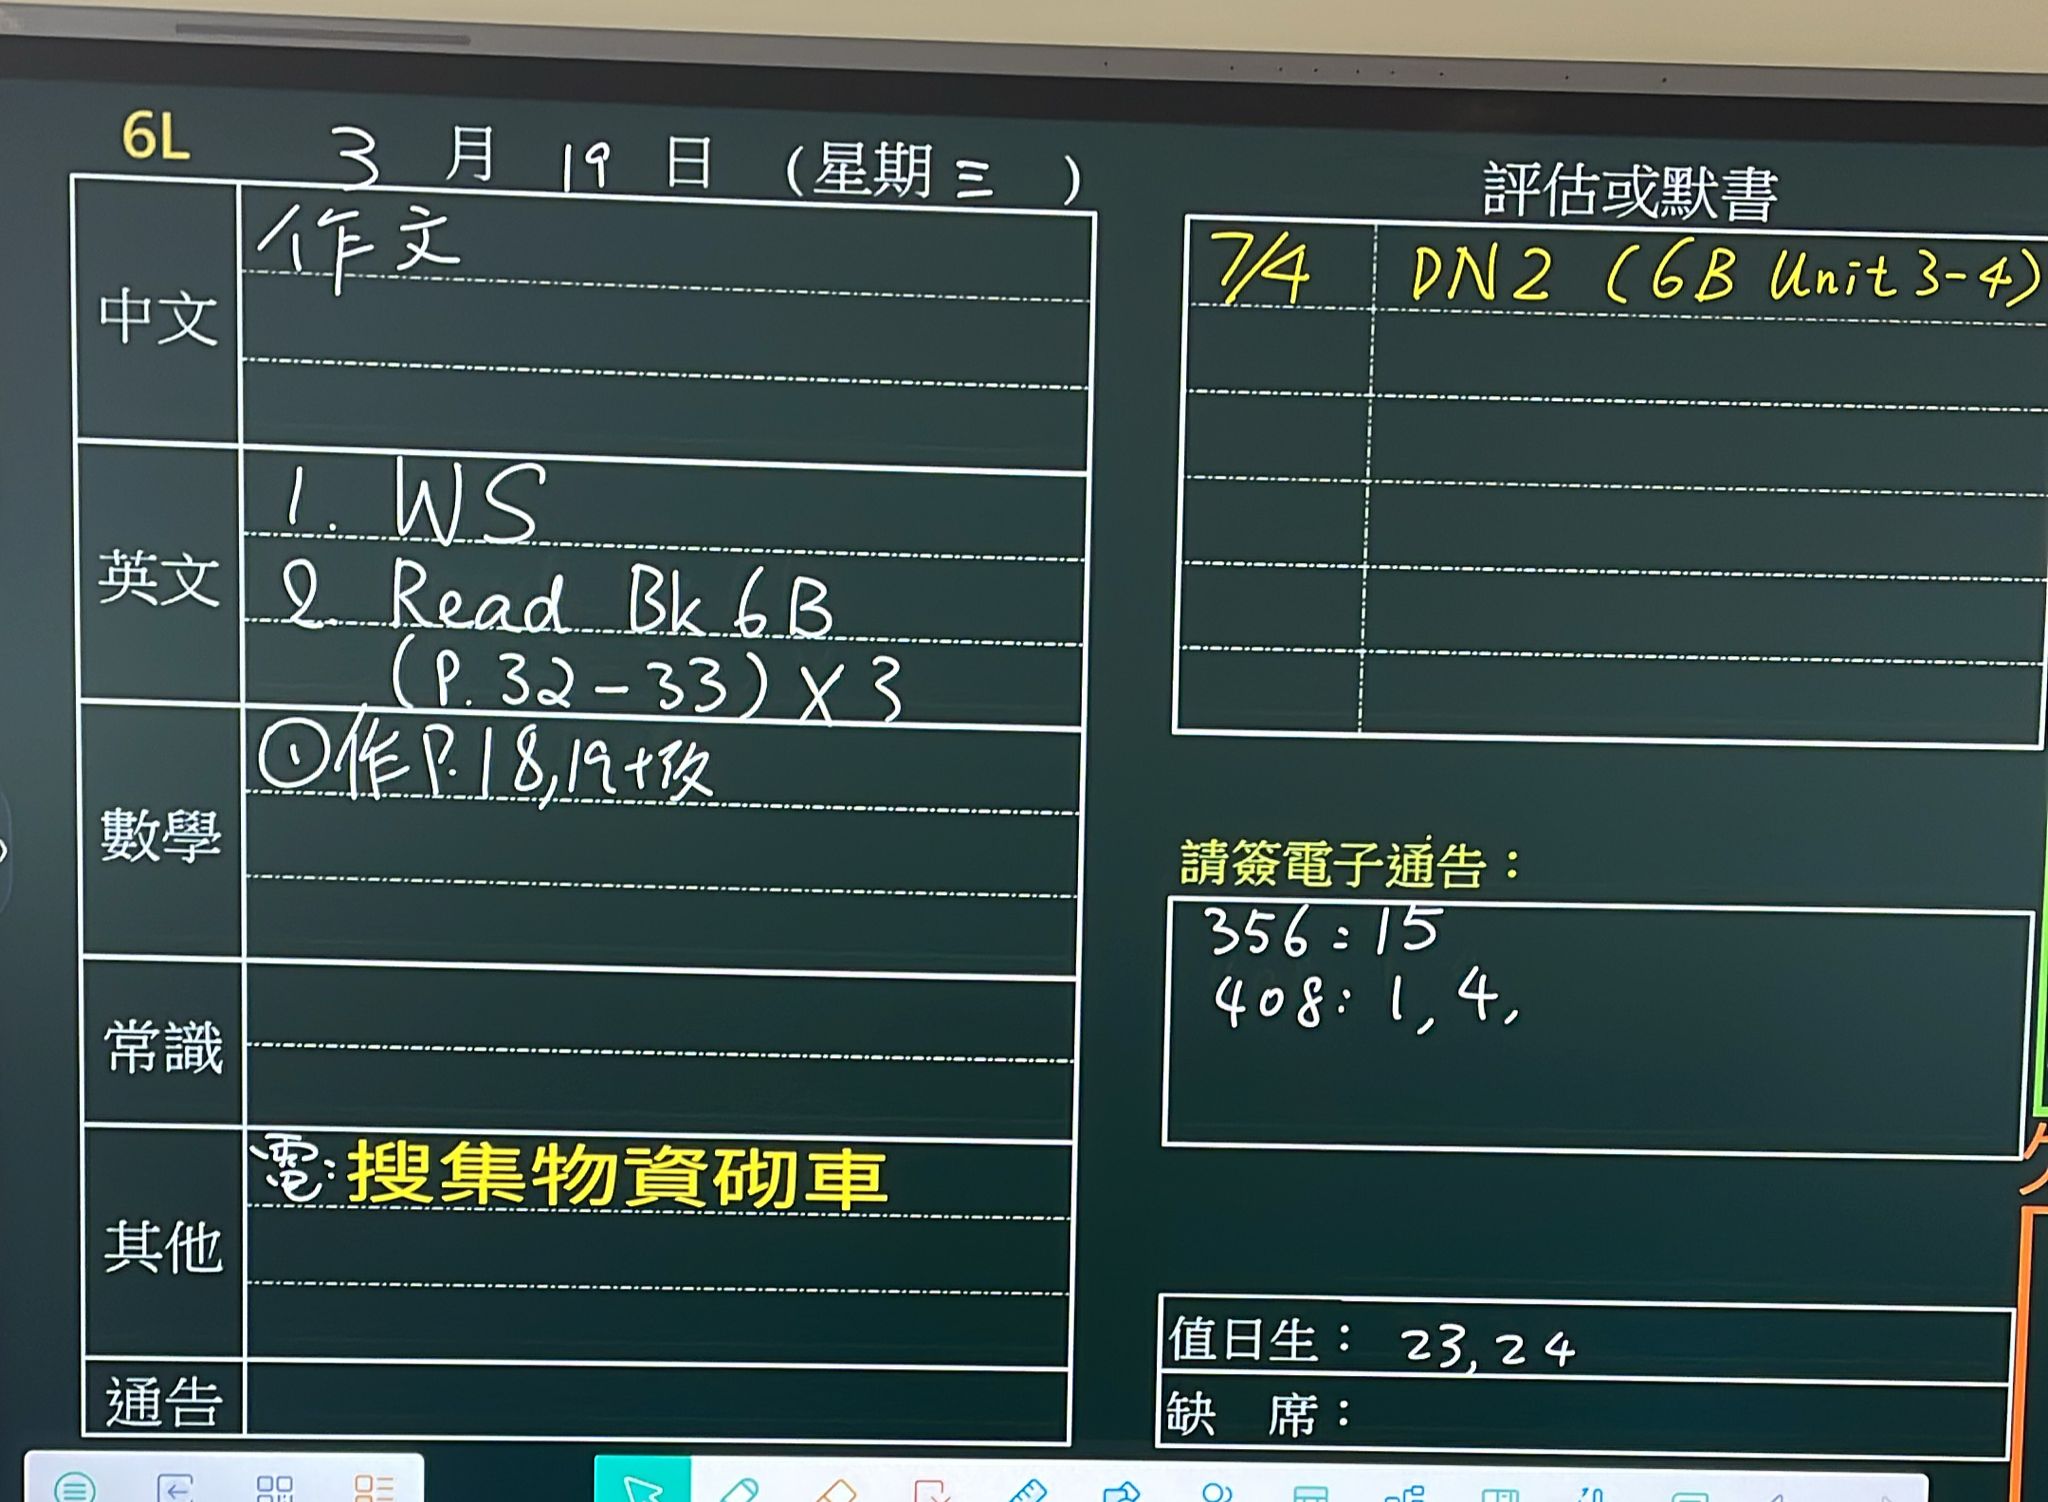 6L 3 月 19 日 (星期三 )
中文
作文
英文
1. WS
2. Read Bk 6B
(P. 32-33) X 3
數學
①作P.18,19+改
常識
其他
電:搜集物資砌車
通告
評估或默書
7/4 DN2 (6B Unit 3-4)
請簽電子通告：
356:15
408: 1, 4,
值日生： 23, 24
缺 席：